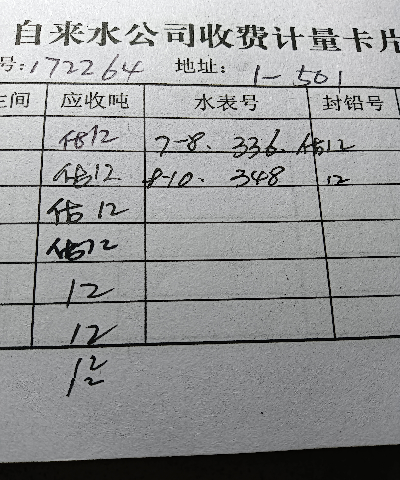 自来水公司收费计量卡片
号:172264 地址: 1-501
应收吨 水表号 封铅号
估12 7-8. 336. 估12
估12. 8-10. 348 12
估12
估12
12
12
12